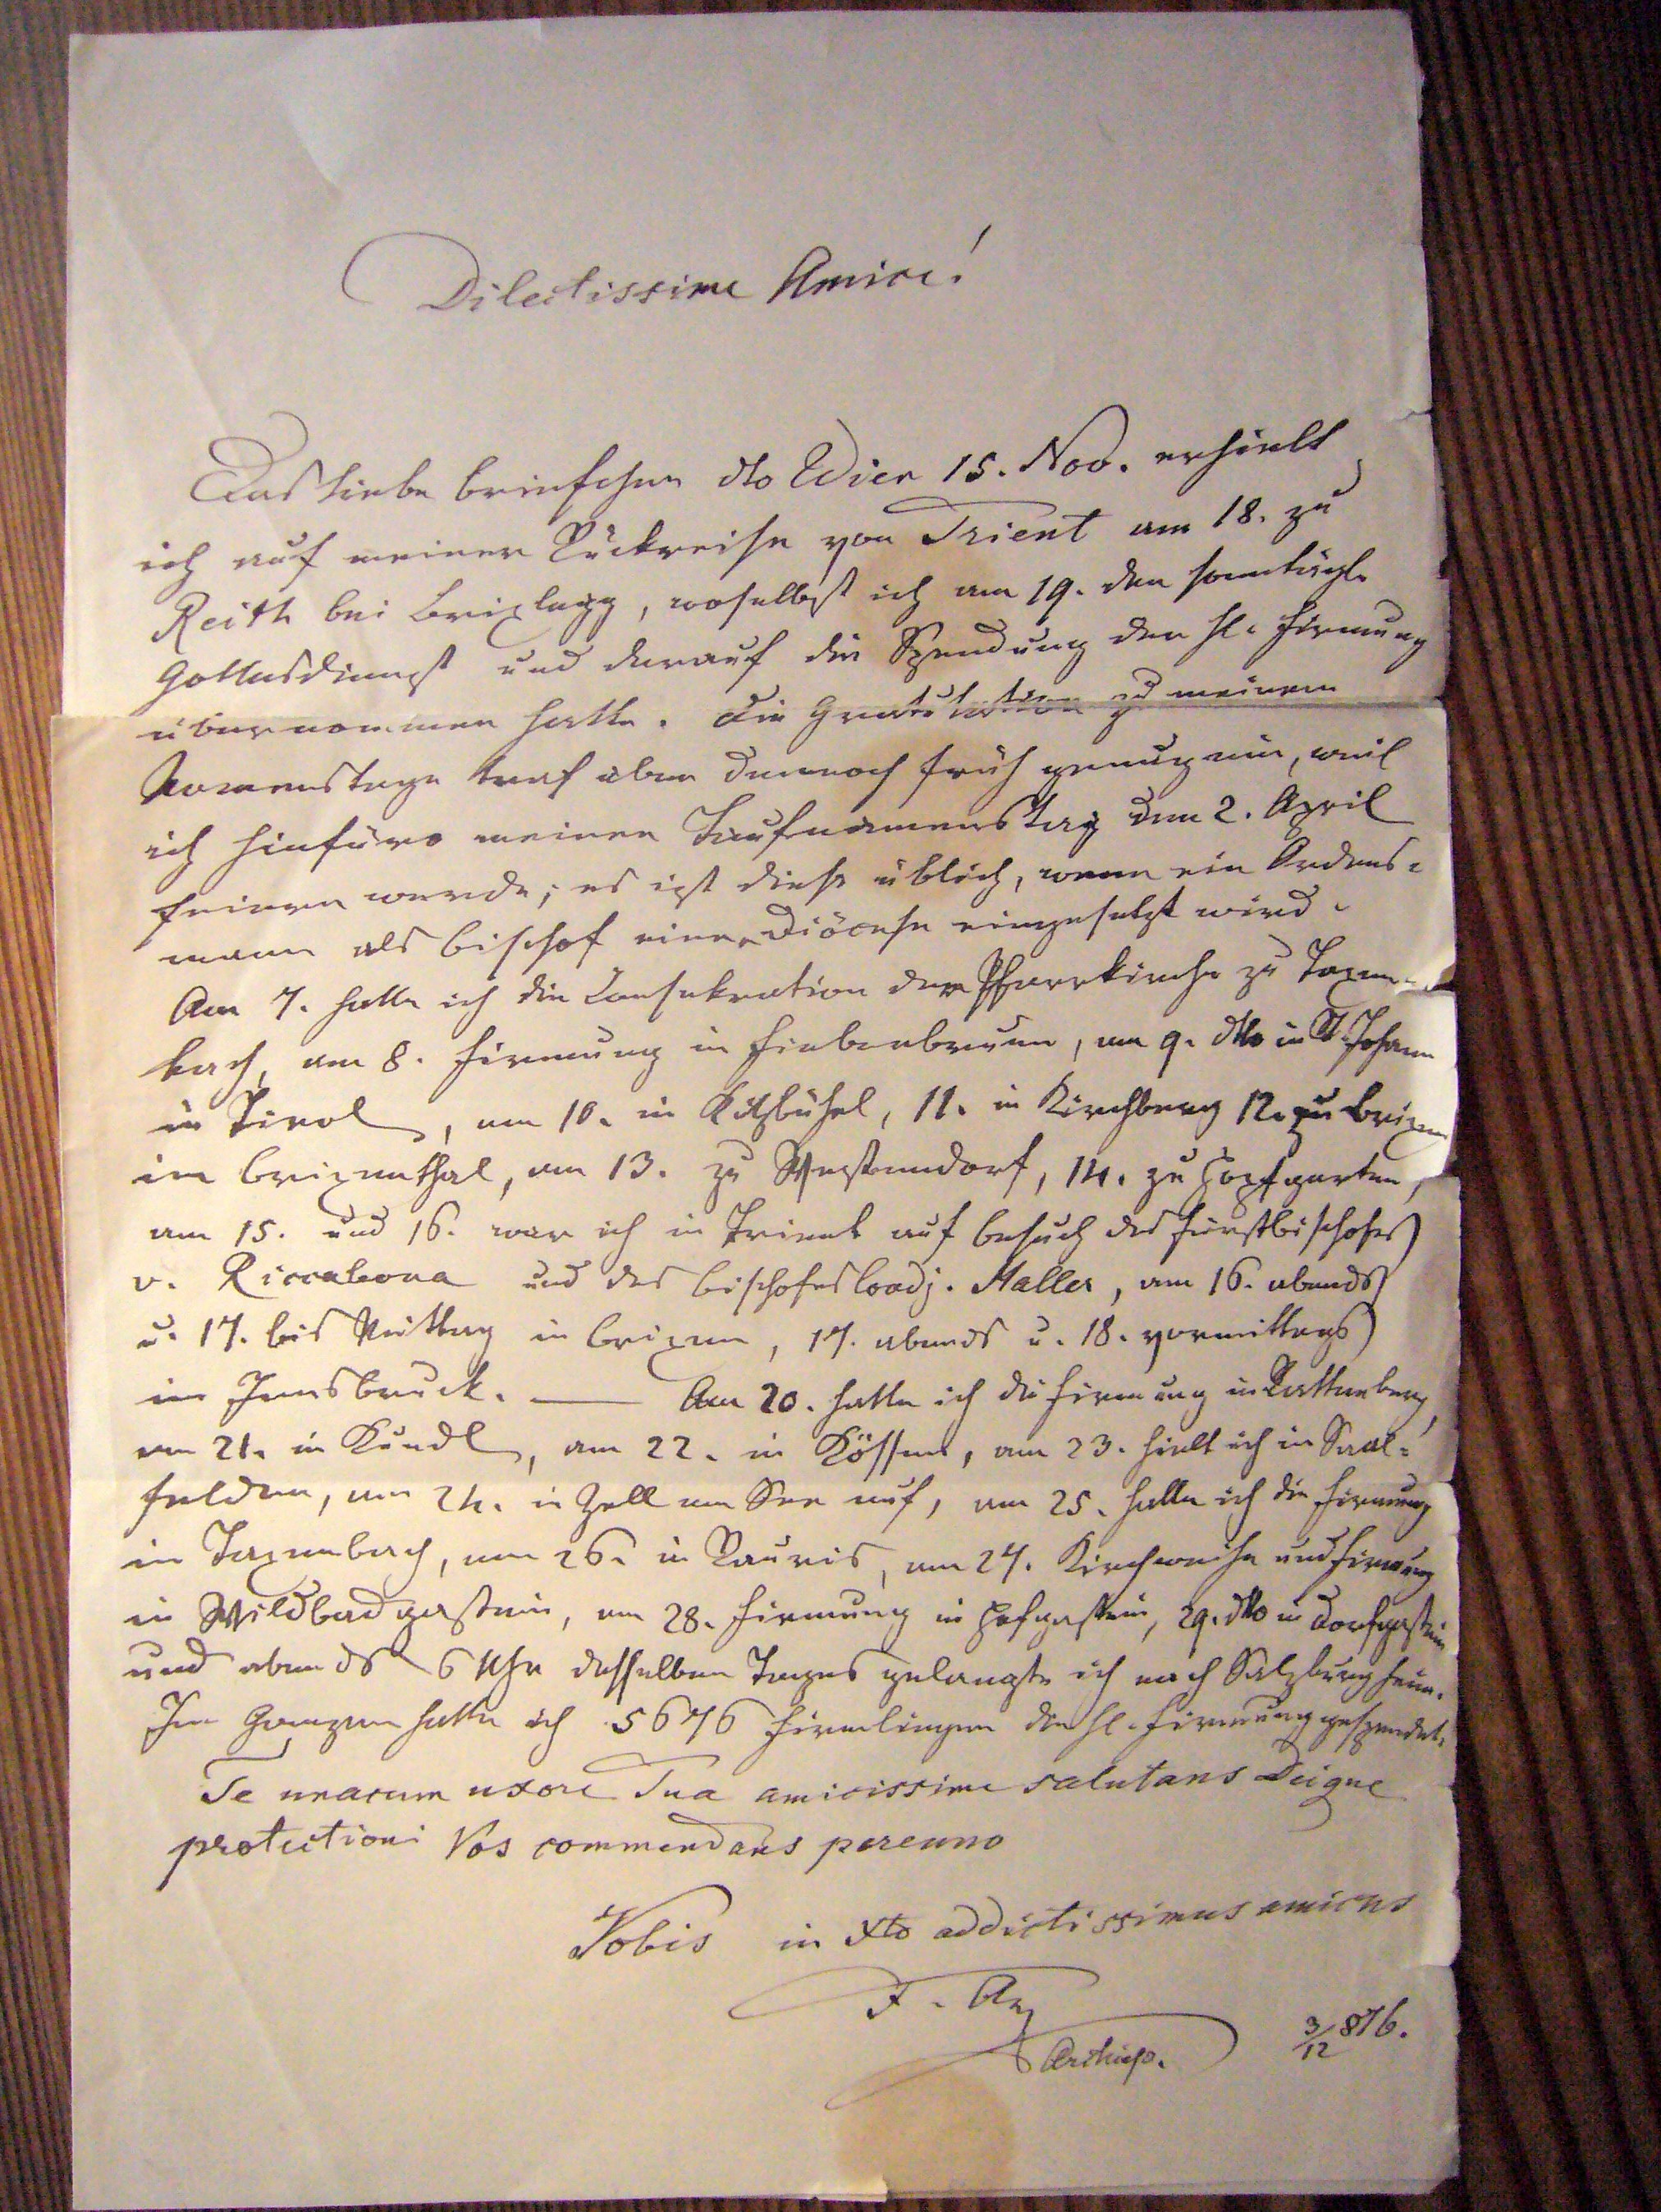 Dilectissime Amice!
Das liebe Briefchen dto Wien 15. Nov. erhielt
ich auf meiner Rückreise von Trient am 18. zu
Reith bei Brixlegg, woselbst ich am 19. den sonntägl.
Gottesdienst und darauf die Spendung der hl. Firmung
übernommen hatte. Die Gratulation zu meinem
Namenstage traf aber dennoch früh genug ein, weil
ich hinfüro meinen Taufnamenstag den 2. April
feiern werde; es ist dieß üblich, wenn ein Ordens=
mann als Bischof einer Diöcese eingesetzt wird.
Am 7. hatte ich die Consekration der Pfarrkirche zu Taxen=
bach, am 8. Firmung in Fieberbrunn, am 9. dto in St Johann
in Tirol, am 10. in Kitzbühel, 11. in Kirchberg 12. zu Brixen
im Brixenthal, am 13. zu Westendorf, 14. zu Hopfgarten,
am 15. und 16. war ich in Trient auf Besuch des Fürstbischofes
v. Riccabona und des Bischofes Coadj. Haller, am 16. abends
u. 17. bis Mittag in Brixen, 17. abends u. 18. vormittags
in Innsbruck. — Am 20. hatte ich die Firmung in Rattenberg,
am 21. in Kundl, am 22. in Kössen, am 23. hielt ich in Saal=
felden, am 24. in Zell am See auf, am 25. hatte ich die Firmung
in Taxenbach, am 26. in Rauris, am 27. Kirchweihe und Firmung
in Wildbadgastein, am 28. Firmung in Hofgastein, 29. dto in Dorfgastein
und abends 6 Uhr desselben Tages gelangte ich nach Salzburg heim.
Im Ganzen hatte ich 5676 Firmlingen die hl. Firmung gespendet.
Te unacum uxore Tua amicissime salutans Deique
protectioni Vos commendans pereuno
Vobis in Xto addictissimus amicus
F. Alb
Archiep.
3/12 876.